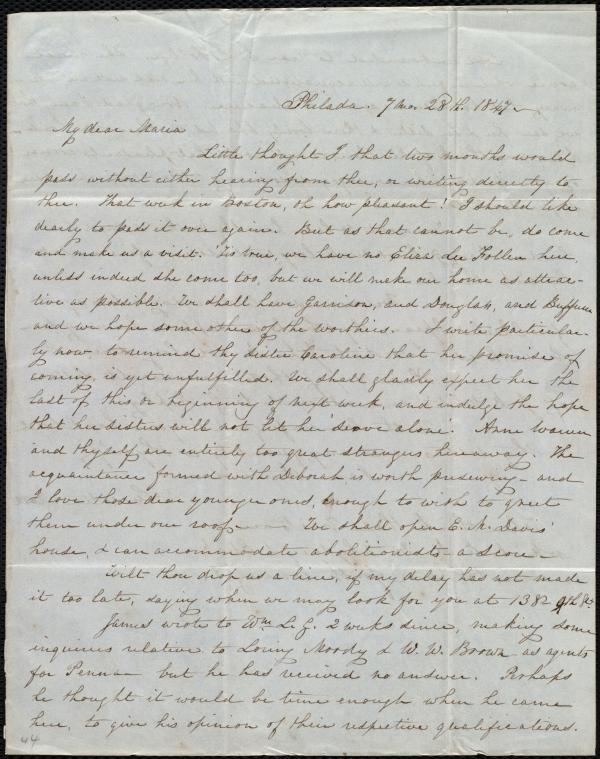 Philada. 7 mo. 28th. 1847
My dear Maria
Little thought I that two months would
pass without either hearing from thee, or writing directly to
thee. That week in Boston, oh how pleasant! I should like
dearly to pass it over again. But as that cannot be, do come
and make us a visit. Tis true, we have no Eliza Lee Follen here,
unless indeed she come too, but we will make our home as attrac-
tive as possible. We shall have Garrison, and Douglass, and Buffum
and we hope some other of the worthies. I write particular-
ly now to remind thy sister Caroline that her promise of
coming, is yet unfulfilled. We shall gladly expect her the
last of this or beginning of next week, and indulge the hope
that her sisters will not let her 'leave alone'. Anne Warren
and thyself are entirely too great strangers hereaway. The
acquaintance formed with Deborah is worth preserving - and
I love those dear younger ones, enough to wish to greet
them under our roof. We shall open E. M. Davis'
house, & can accommodate abolitionists a score
Wilt thou drop us a line, if my delay has not made
it too late, saying when we may look for you at 138 N. 9th St.
James wrote to Wm. L. G. 2 weeks since, making some
inquiries relative to Loring Moody & W. W. Brown as agents
for Penna - but he has received no answer. Perhaps
he thought it would be time enough when he came
here, to give his opinion of their respective qualifications.
44